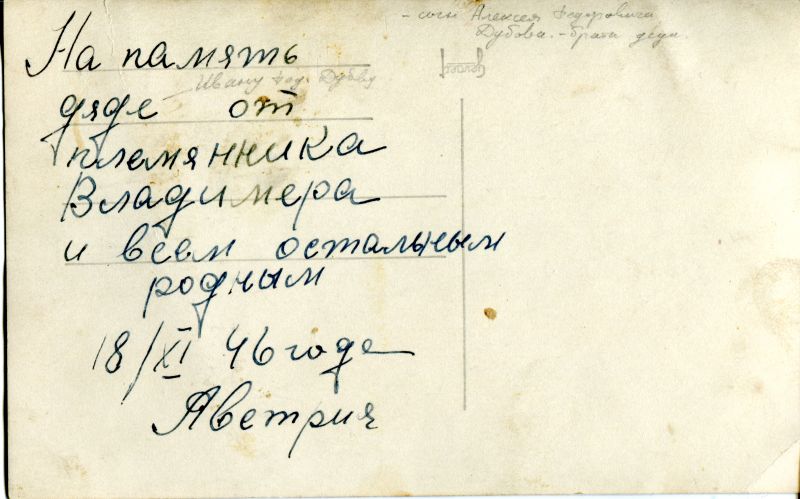 На память
дяде от
племянника
Владимера
и всем остальным
родным
18/XI 46 годе
Австрия
Ивану Фед. Дубову
- сын Алексея Федоровича
Дубова. - брата деда.